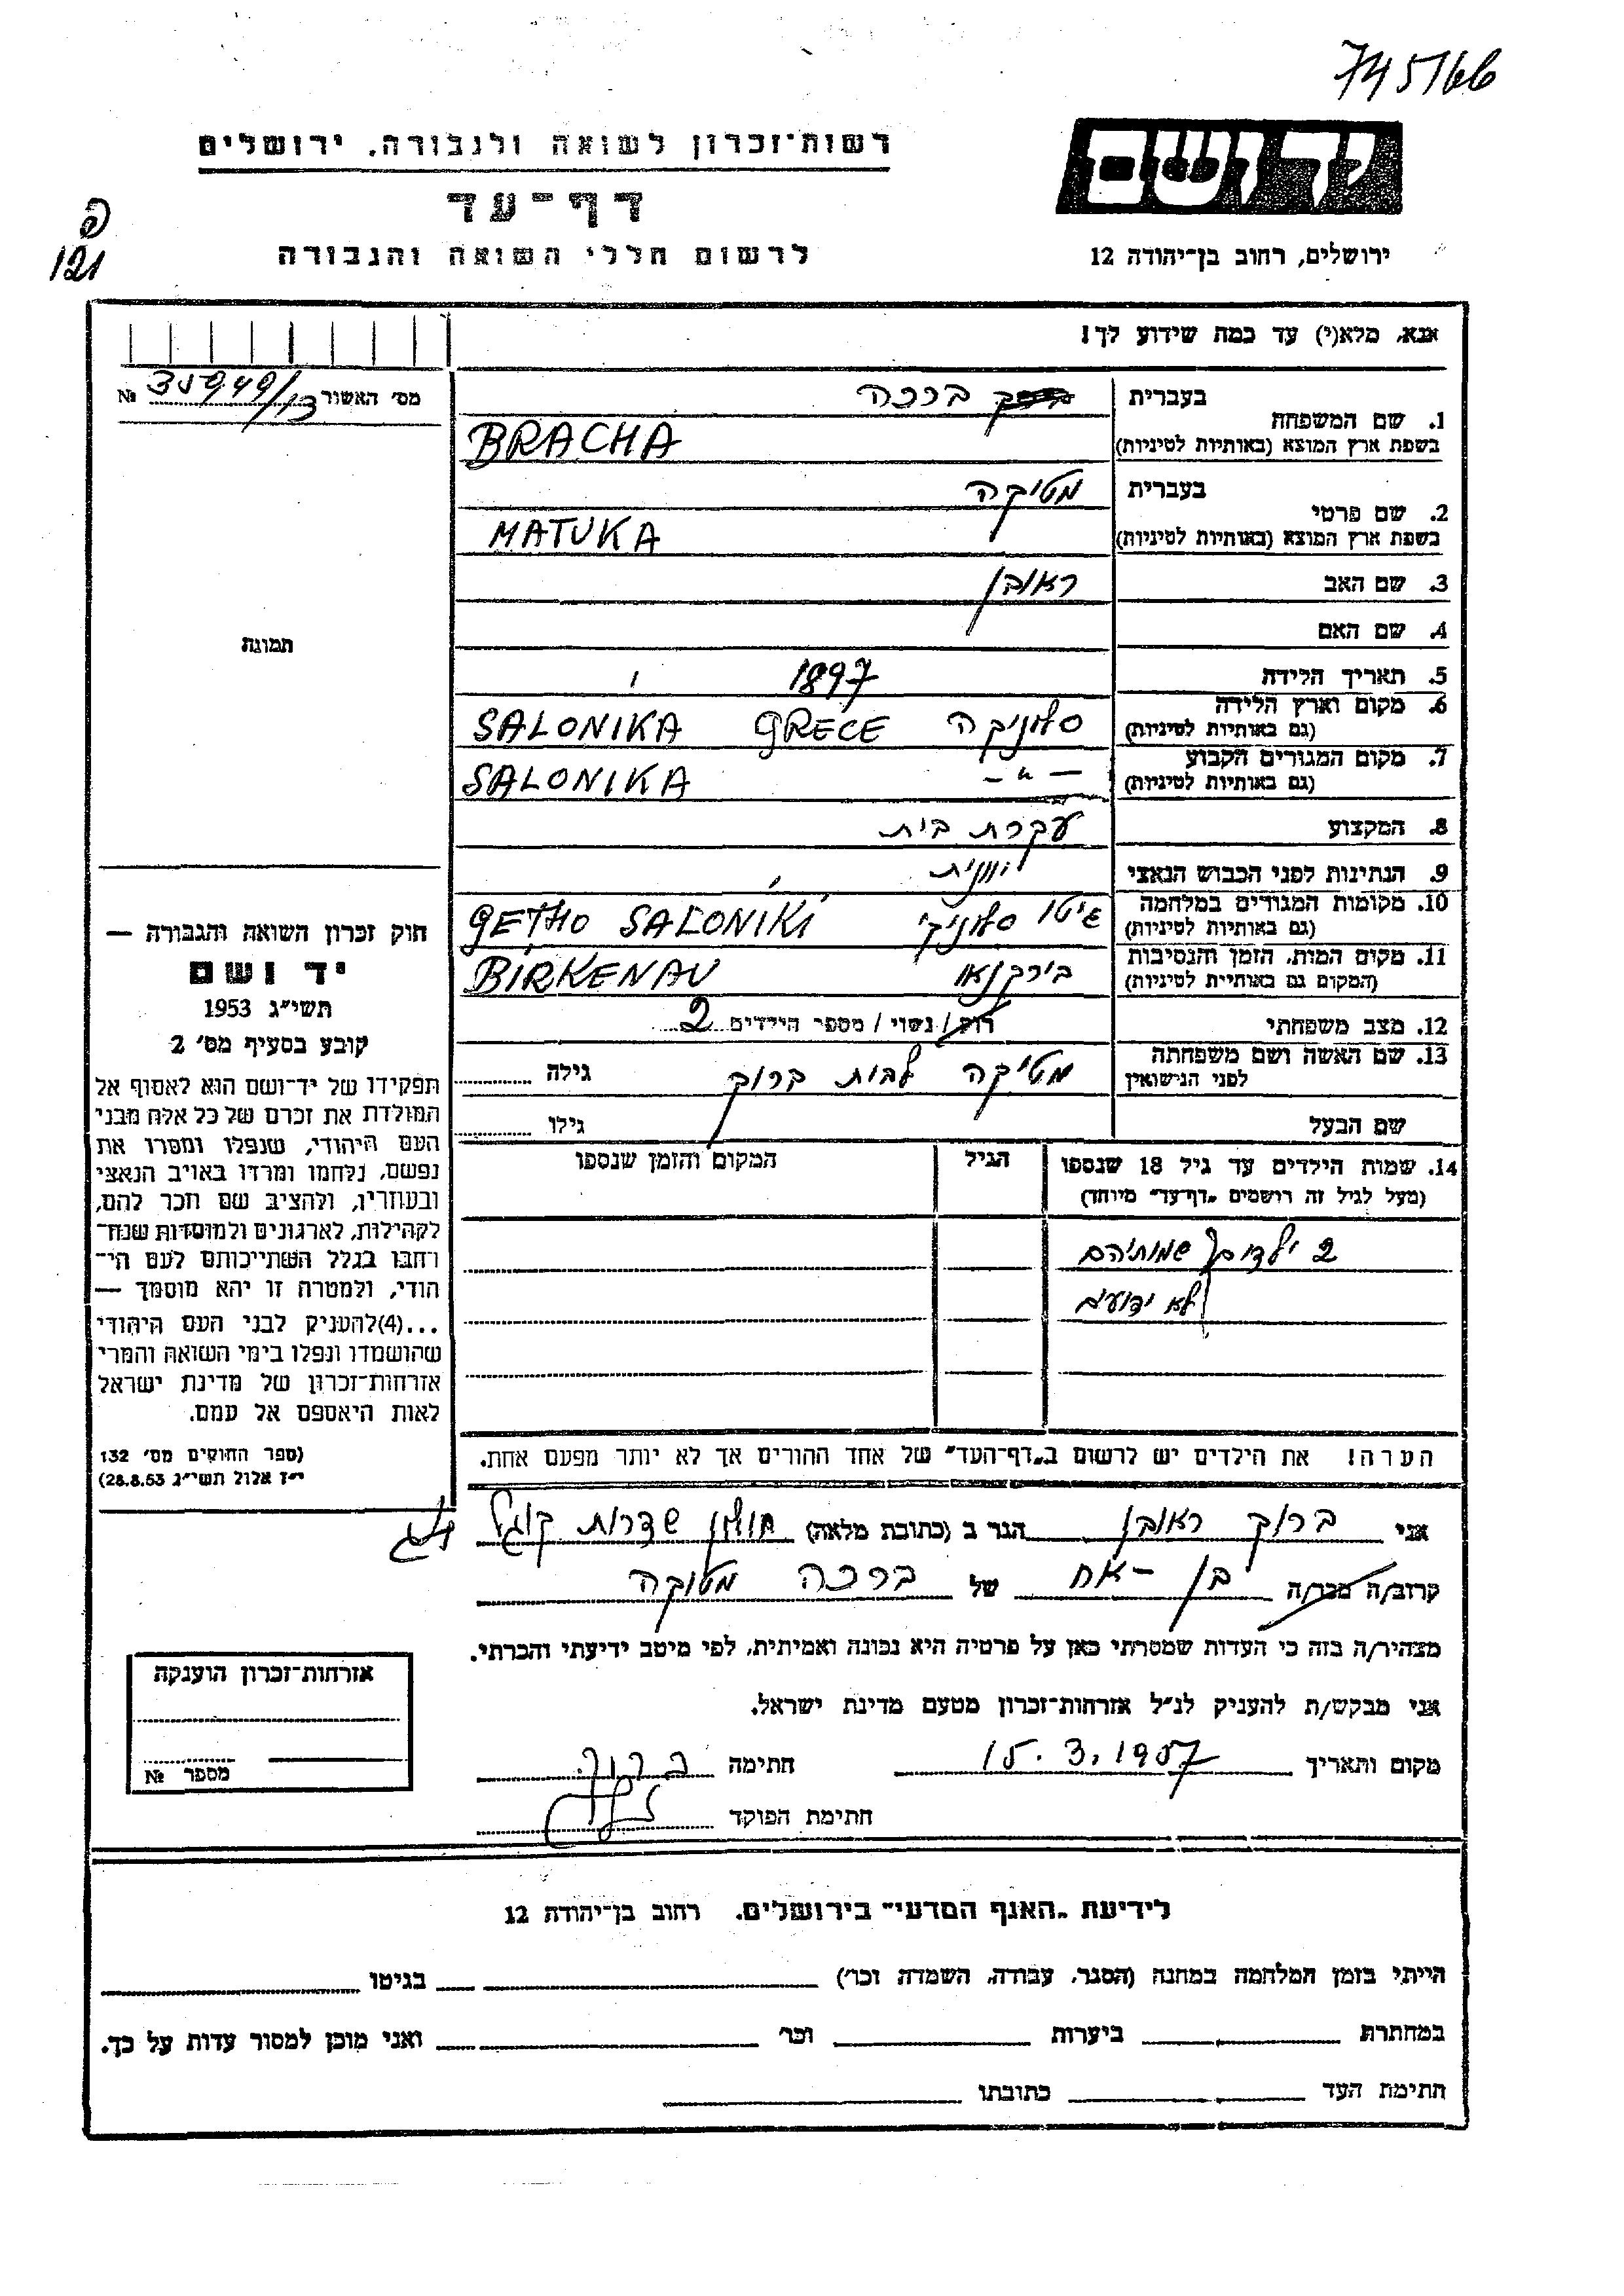 745766
רשות־זכרון לשואה ולגבורה, ירושלים
יד ושם
דף־עד
לרשום חללי השואה והגבורה
ירושלים, רחוב בן־יהודה 12
121
אנא, מלא(י) עד כמה שידוע לך!
מס׳ האשור 35949/13 №
1. שם המשפחה בעברית ברכה
בשפת ארץ המוצא (באותיות לטיניות) BRACHA
2. שם פרטי בעברית מטיקה
בשפת ארץ המוצא (באותיות לטיניות) MATUKA
3. שם האב ראובן
4. שם האם
תמונה
5. תאריך הלידה 1897
6. מקום וארץ הלידה (גם באותיות לטיניות) סלוניקה GRECE SALONIKA
7. מקום המגורים הקבוע (גם באותיות לטיניות) — " — SALONIKA
8. המקצוע עקרת בית
9. הנתינות לפני הכבוש הנאצי יוונית
10. מקומות המגורים במלחמה (גם באותיות לטיניות) גיטו סלוניקי GETHO SALONIKI
11. מקום המות, הזמן והנסיבות (המקום גם באותיות לטיניות) בירקנאו BIRKENAU
12. מצב משפחתי רוק/נשוי/מספר הילדים 2
13. שם האשה ושם משפחתה לפני הנישואין מטיקה לבית ברוך גילה
שם הבעל גילו
14. שמות הילדים עד גיל 18 שנספו הגיל המקום והזמן שנספו
(מעל לגיל זה רושמים „דף־עד״ מיוחד)
2 ילדים שמותיהם
לא ידועים
הערה! את הילדים יש לרשום ב„דף־העד״ של אחד ההורים אך לא יותר מפעם אחת.
חוק זכרון השואה והגבורה —
יד ושם
תשי״ג 1953
קובע בסעיף מס׳ 2
תפקידו של יד־ושם הוא לאסוף אל
המולדת את זכרם של כל אלה מבני
העם היהודי, שנפלו ומסרו את
נפשם, נלחמו ומרדו באויב הנאצי
ובעוזריו, ולהציב שם וזכר להם,
לקהילות, לארגונים ולמוסדות שנח־
רבו בגלל השתייכותם לעם הי־
הודי, ולמטרה זו יהא מוסמך —
...(4)להעניק לבני העם היהודי
שהושמדו ונפלו בימי השואה והמרי
אזרחות־זכרון של מדינת ישראל
לאות היאספם אל עמם.
(ספר החוקים מס׳ 132
י״ז אלול תשי״ג 28.8.53)
אני ברוך ראובן הגר ב (כתובת מלאה) חולון שדרות קוגל
קרוב/ה מכר/ה בן - אח של ברכה מטוקה
מצהיר/ה בזה כי העדות שמסרתי כאן על פרטיה היא נכונה ואמיתית, לפי מיטב ידיעתי והכרתי.
אני מבקש/ת להעניק לנ״ל אזרחות־זכרון מטעם מדינת ישראל.
מקום ותאריך 15.3.1957 חתימה ברוך
חתימת הפוקד
אזרחות־זכרון הוענקה
מספר №
לידיעת „האגף המדעי״ בירושלים, רחוב בן־יהודה 12
הייתי בזמן המלחמה במחנה (הסגר, עבודה, השמדה וכו׳) בגיטו
במחתרת ביערות וכו׳ ואני מוכן למסור עדות על כך.
חתימת העד כתובתו